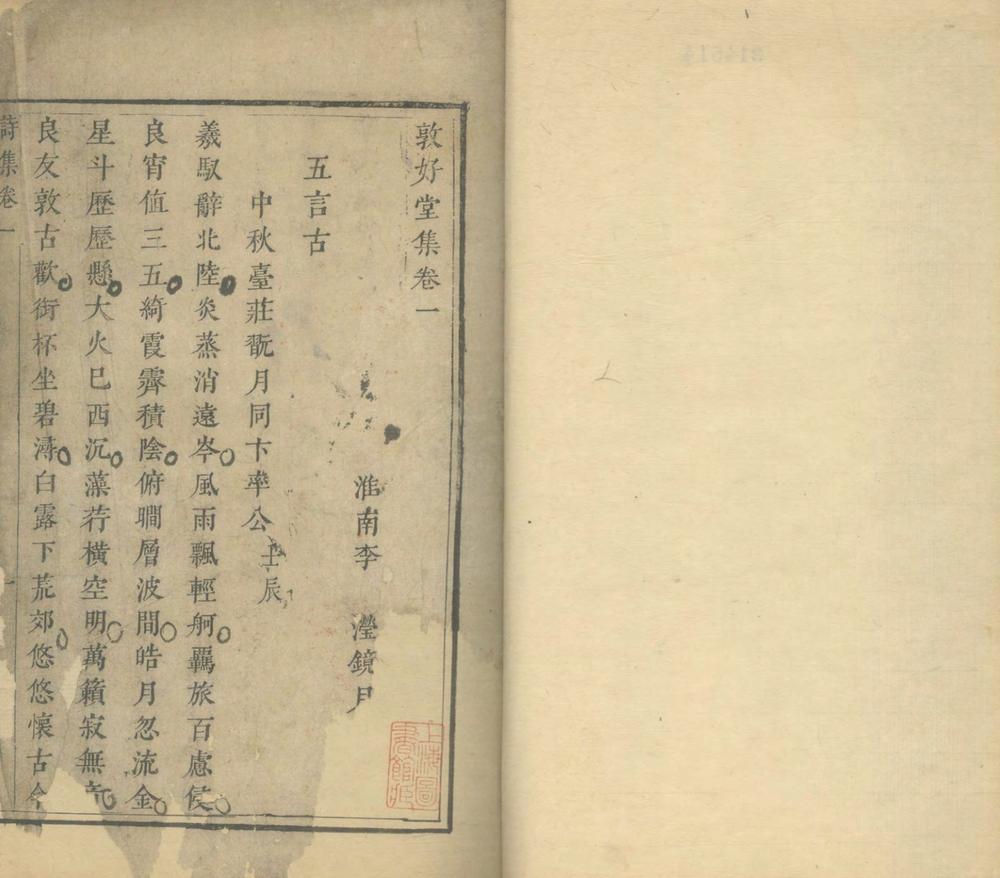 敦好堂集卷一
淮南李　瀅鏡月
五言古
中秋臺莊翫月同卞牽公壬辰
羲馭辭北陸炎蒸消遠岑風雨飄輕舸羈旅百慮侵
良宵值三五綺霞霽積陰俯瞷層波間皓月忽流金
星斗歷歷懸大火巳西沉藻荇橫空明萬籟寂無
良友敦古歡銜杯坐碧潯白露下荒郊悠悠懷古今
詩集卷一
上海圖書館藏